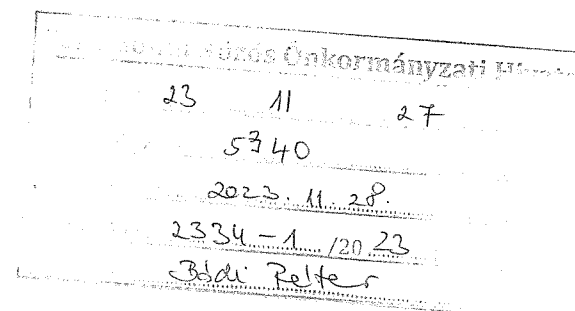 Közös Önkormányzati
23 11 27
5740
2023. 11. 28.
2334-1 /20 23
Bódi